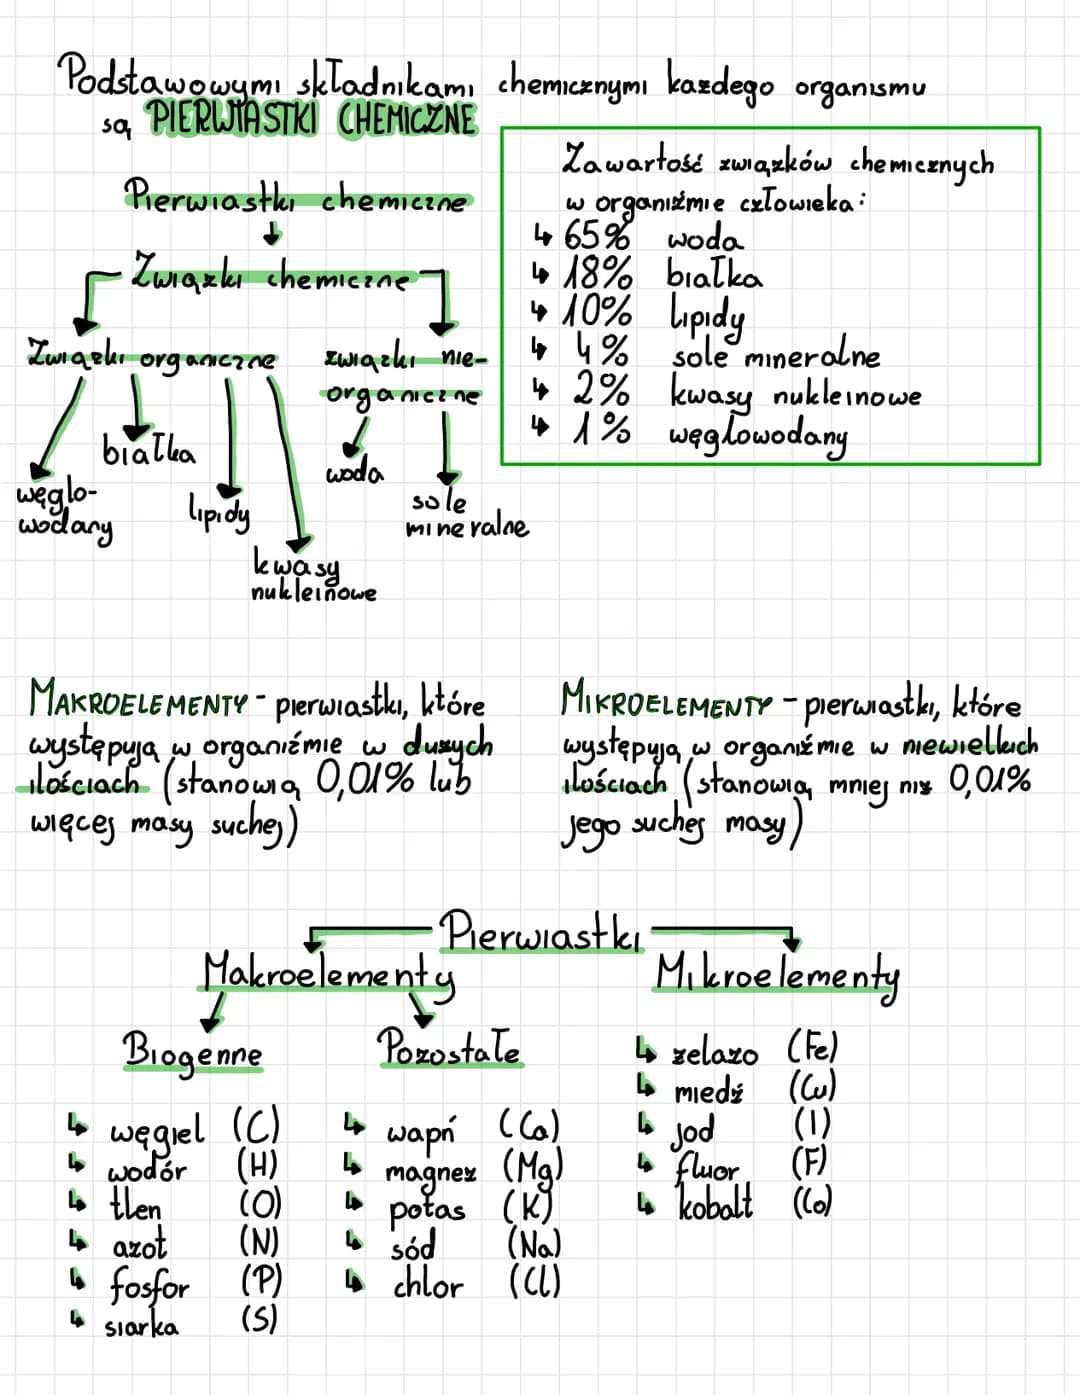 Podstawowymi składnikami chemicznymi każdego organismu
są PIERWIASTKI CHEMICZNE
Pierwiastki chemiczne
Związki chemiczne
Związki organiczne
związki nie-
organiczne
białka
węglo-
wodany
lipidy
kwasy
nukleinowe
woda
sole
mineralne
Zawartość związków chemicznych
w organiźmie człowieka:
↳ 65% woda
↳ 18% białka
↳ 10% lipidy
↳ 4% sole mineralne
↳ 2% kwasy nukleinowe
↳ 1% węglowodany
MAKROELEMENTY - pierwiastki, które
występują w organiźmie w dużych
ilościach (stanowią 0,01% lub
więcej masy suchej)
MIKROELEMENTY - pierwiastki, które
występują w organiźmie w niewielkich
ilościach (stanowią mniej niż 0,01%
jego suchej masy)
Pierwiastki
Makroelementy
Mikroelementy
Biogenne
↳ węgiel (C)
↳ wodór (H)
↳ tlen (O)
↳ azot (N)
↳ fosfor (P)
↳ siarka (S)
Pozostałe
↳ wapń (Ca)
↳ magnez (Mg)
↳ potas (K)
↳ sód (Na)
↳ chlor (Cl)
↳ żelazo (Fe)
↳ miedź (Cu)
↳ jod (I)
↳ fluor (F)
↳ kobalt (Co)